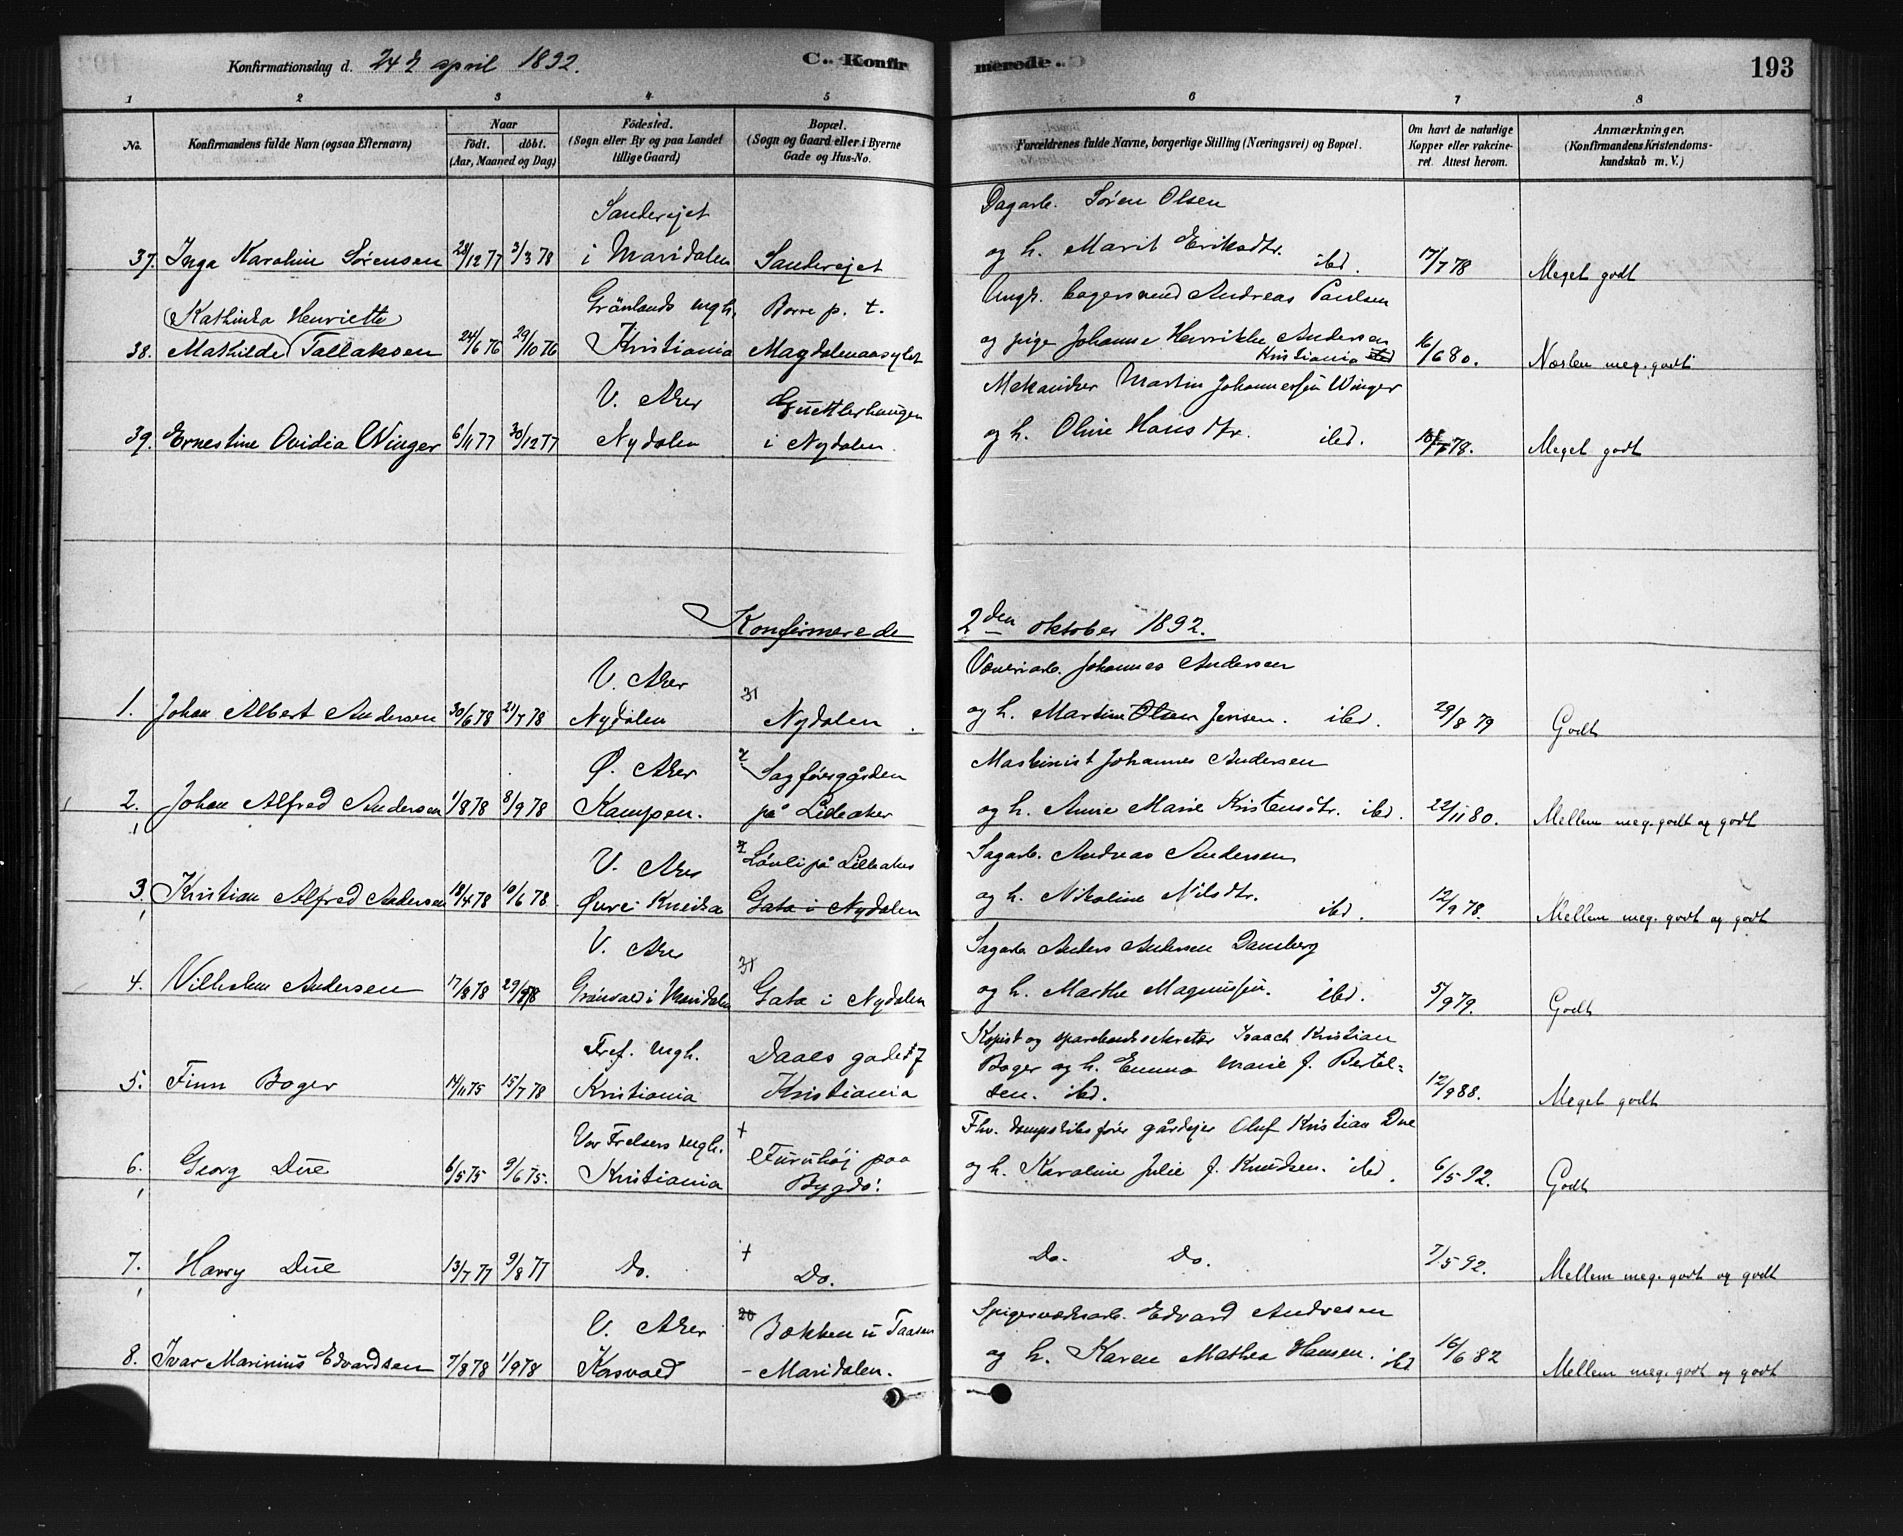 Konfirmationsdag d. 24d april 1892.
C.. Konfir
merede..
193
1 2 3 4 5 6 7 8
No.
Konfirmandens fulde Navn (ogsaa Efternavn)
Naar
født. døbt.
(Aar, Maaned og Dag)
Fødested.
(Sogn eller By og paa Landet
tillige Gaard)
Bopæl.
(Sogn og Gaard eller i Byerne
Gade og Hus-No.
Forældrenes fulde Navne, borgerlige Stilling (Næringsvei) og Bopæl.
Om havt de naturlige
Kopper eller vakcine-
ret. Attest herom.
Anmærkninger.
(Konfirmandens Kristendoms-
kundskab m. V.)
Sanderejet
Dagarb. Søren Olsen
37. Inga Karoline Sørensen 28/12 77 3/3 78 i Maridalen Sanderejet og h. Marit Eriksdtr. ibd. 17/7 78 Meget godt
Kathinka Henriette Grønlands mgh. Borre p. t. Ungk. bagersvend Andreas Paulsen
38. Mathilde Tallaksen 24/6 76 29/10 76 Kristiania Magdalenaasylet og pige Johanne Henrikke Andersen
Kristiania ibd 16/6 80. Næsten meg. godt
V. Aker Gutterhaugen Mekaniker Martin Johannessen Winger
39. Ernestine Ovidia Winger 6/11 77 30/12 77 Nydalen i Nydalen. og h. Oline Hansdtr. ibd. 18/7 78. Meget godt
Konfirmerede 2den oktober 1892.
V. Aker 31 Væveriarb. Johannes Andersen
1. Johan Albert Andersen 30/6 78 21/7 78 Nydalen Nydalen. og h. Martine Olsen Jensen. ibd. 29/8 79 Godt
Ø. Aker Sagførergården Maskinist Johannes Andersen
2. Johan Alfred Andersen 1/8 78 8/9 78 Kampen. på Lileaker og h. Anne Marie Kristensdtr. ibd. 22/11 80. Mellem meg. godt og godt
V. Aker Løvli på Lilleaker Sagarb. Andreas Andersen
3. Kristian Alfred Andersen 18/4 78 10/6 78 Øvre Gata i Nydalen og h. Nikoline Nilsdtr. ibd. 12/9 78. Mellem meg. godt og godt
V. Aker 31 Sagarb. Anders Andersen Damberg
4. Vilhelm Andersen 17/8 78 29/9 78 Grønvold i Maridalen Gata i Nydalen og h. Marthe Magnussen. ibd. 5/9 79. Godt
Tref. mgh. Daaes gade 17 Kopist og sparebanksekretær Isaach Kristian
5. Finn Boger 14/11 75 15/7 78 Kristiania Kristiania Boger og h. Emma Marie f. Bertel-
sen. ibd. 12/9 88. Meget godt
Vor Frelsers mgh. + Furuhøj paa Fhv. dampskibsfører gårdejer Oluf Kristian Due
6. Georg Due 6/5 75 9/6 75. Kristiania Bygdø. og h. Karoline Julie f. Knudsen. ibd. 6/5 92. Godt
7. Harry Due 13/7 77 9/8 77 Do. + Do. Do. Do. 7/5 92. Mellem meg. godt og godt
V. Aker 20 Bækken u Taasen Spigerværksarb. Edvard Andresen
8. Ivar Marinius Edvardsen 7/8 78 1/9 78 Korsvold - Maridalen. og h. Karen Mathea Hansen. ibd 16/6 82 Mellem meg. godt og godt